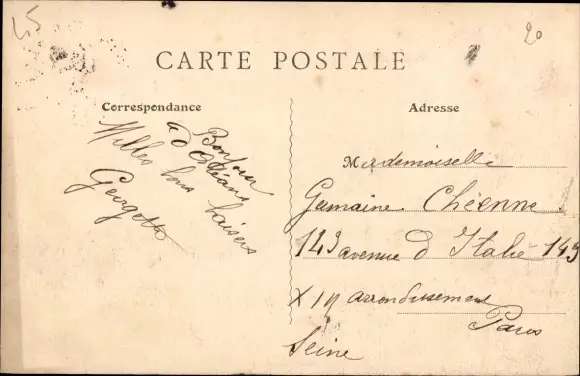 25
20
CARTE POSTALE
Correspondance
Adresse
Bonjour
d'Orléans
Milles bons baisers
Georgette
Mademoiselle
Germaine Chéenne
143 avenue d'Italie 143
XIII arrondissement
Paris
Seine